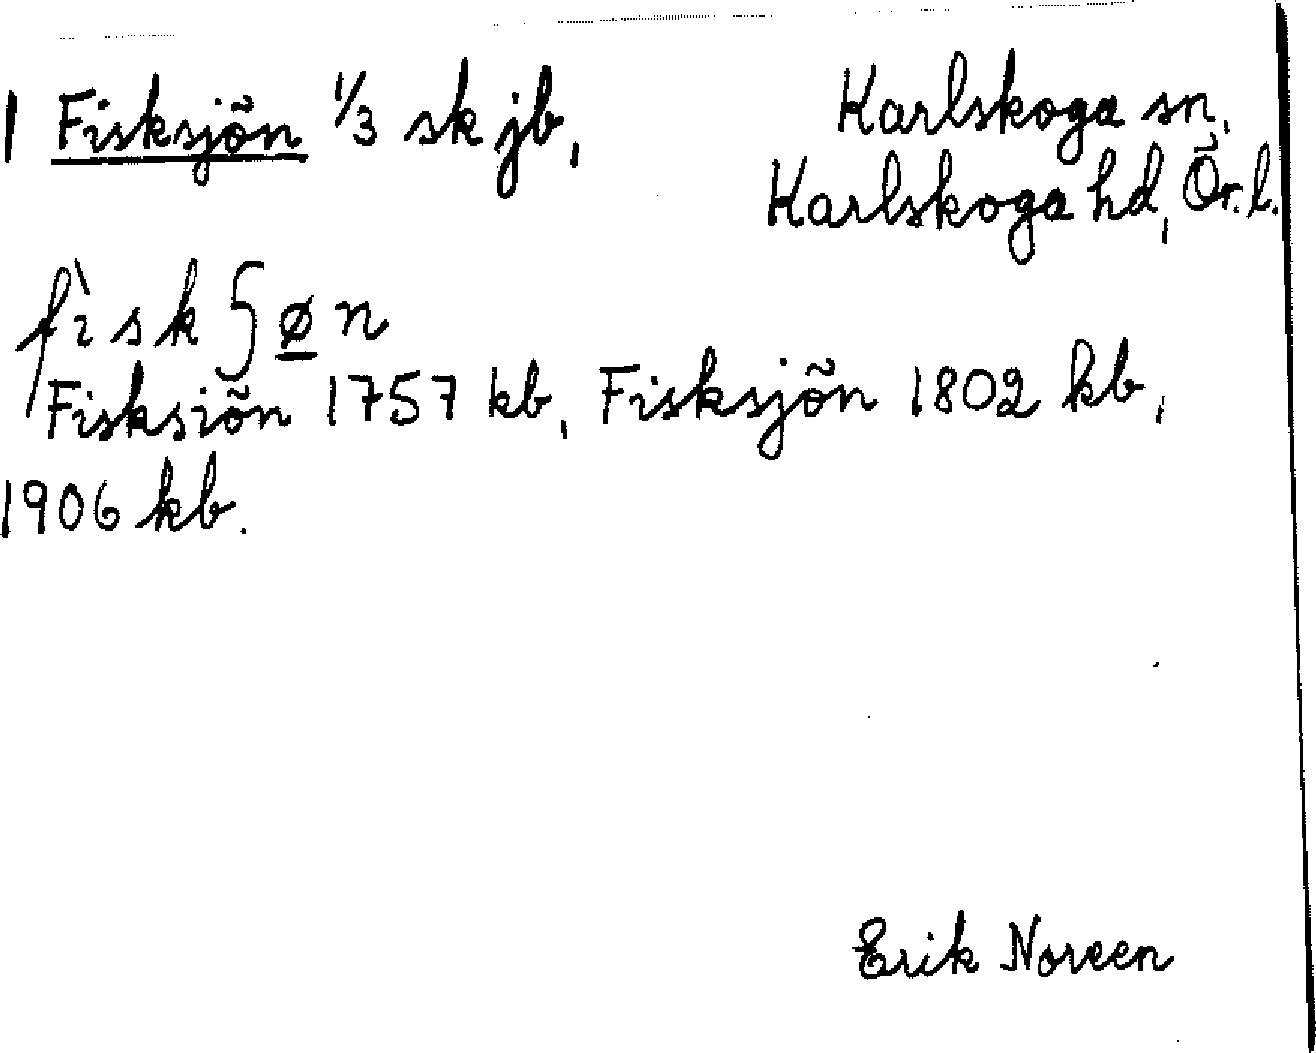 1 Fisksjön 1/3 sk jb,
Karlskoga sn.
Karlskoga hd, Ör. l.
fìskʃø̲n
Fisksiön 1757 kb, Fisksjön 1802 kb,
1906 kb.
Erik Noreen